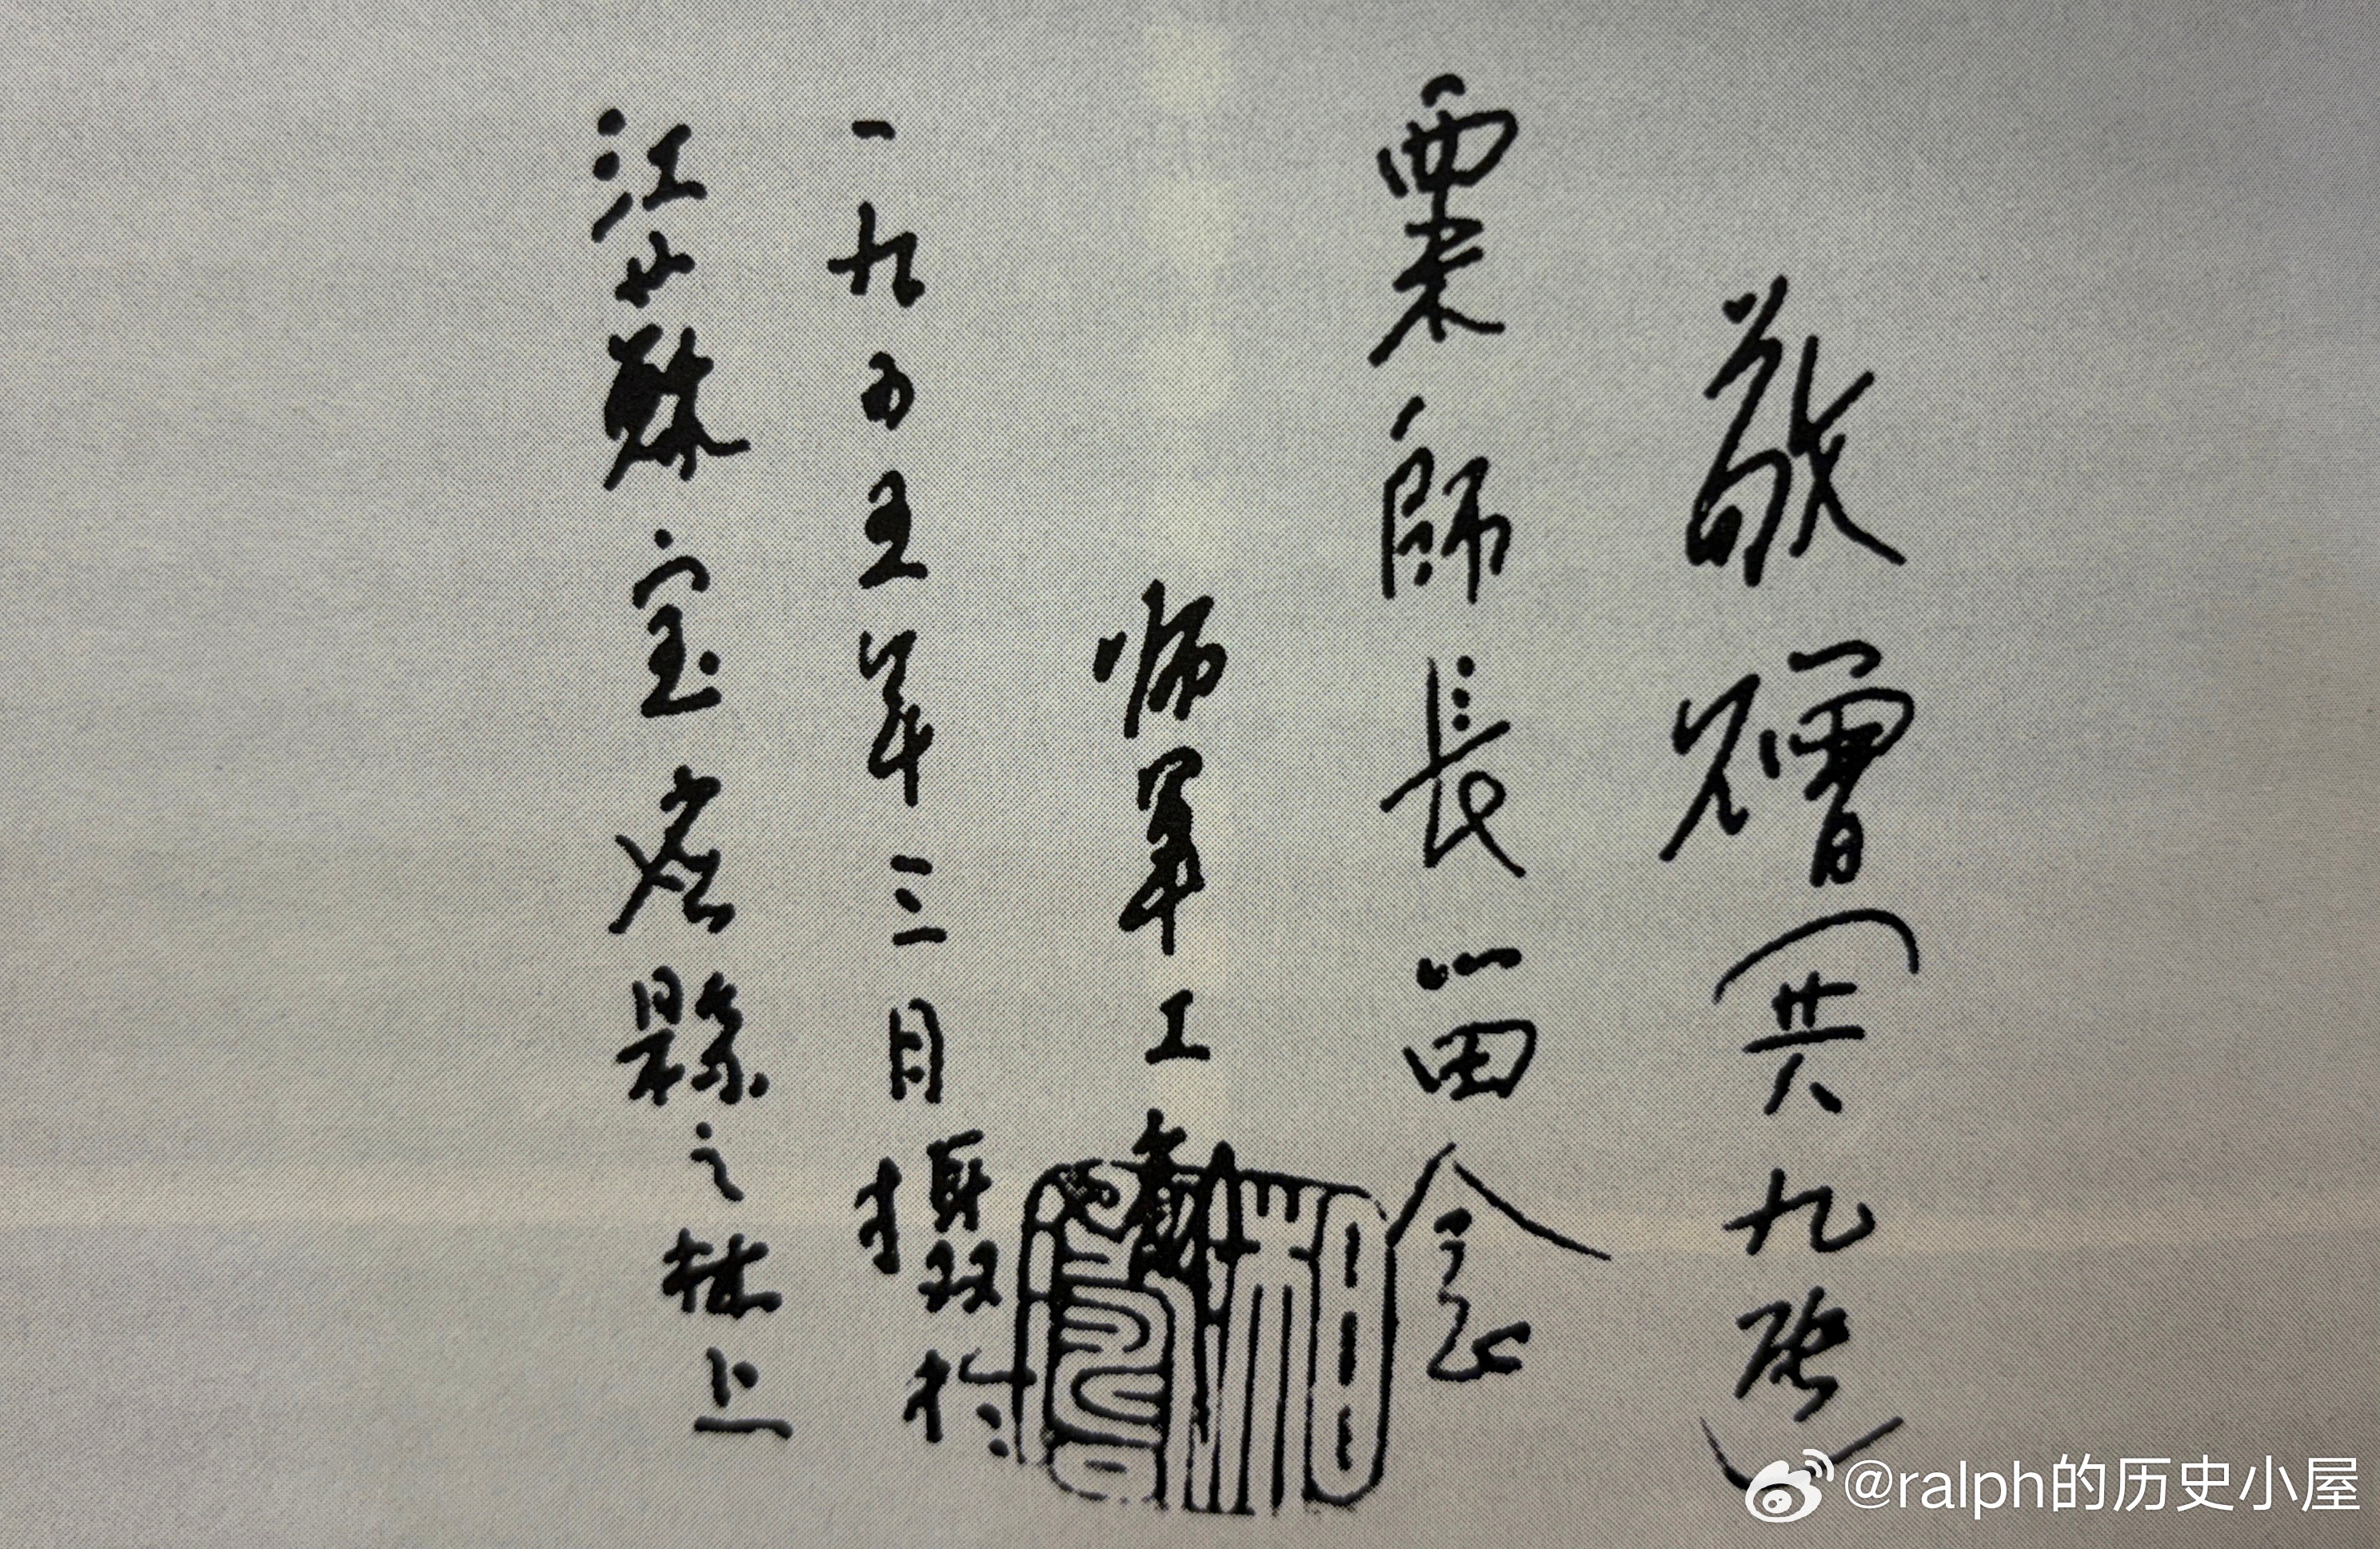 敬贈(共九張)
粟師長留念
师军工
一九四五年三月摄於
江蘇宝应縣之林上
@ralph的历史小屋